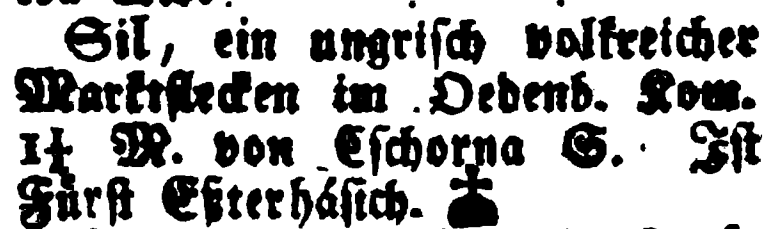 Sil, ein ungrisch volkreicher
Marktflecken im Oedenb. Kom.
1¼ M. von Eschorna S. Ist
Fürst Eßterhásich.